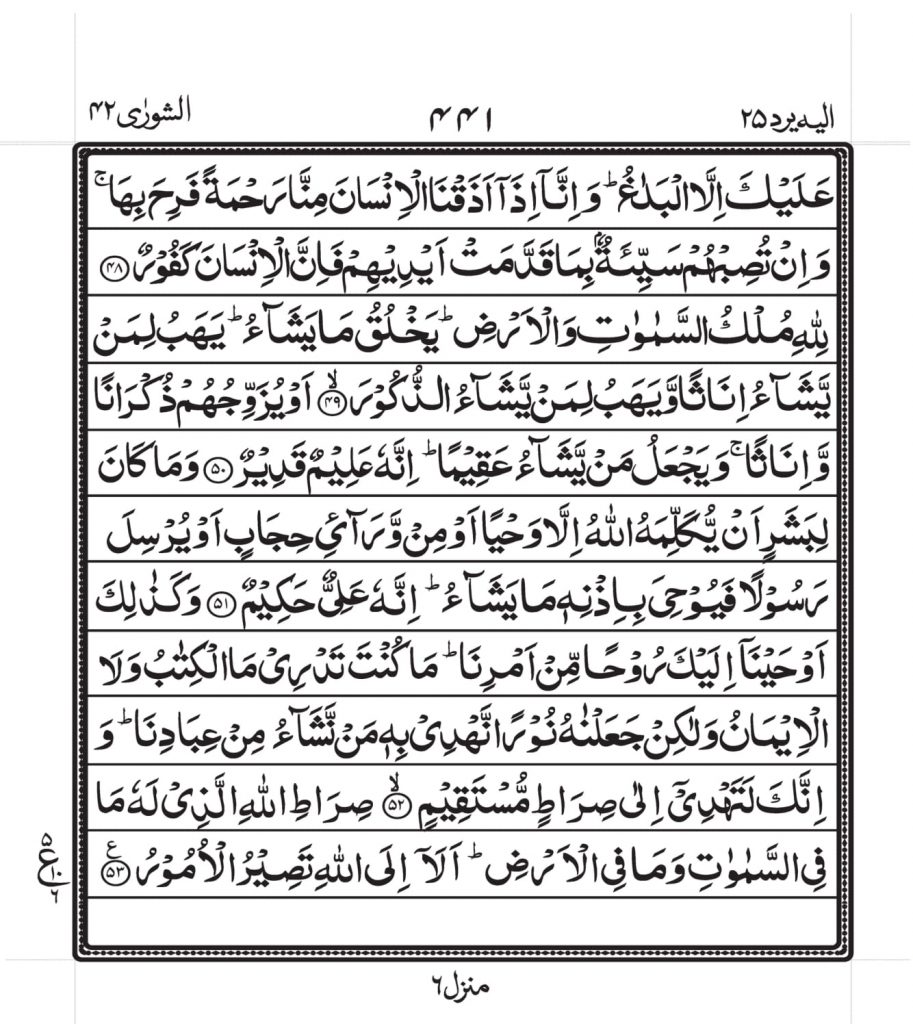 الیه یرد ۲۵ ۴۴۱ الشورٰی ۴۲
عَلَيْكَ اِلَّا الْبَلٰغُ ؕ وَ اِنَّاۤ اِذَاۤ اَذَقْنَا الْاِنْسَانَ مِنَّا رَحْمَةً فَرِحَ بِهَا ۚ
وَ اِنْ تُصِبْهُمْ سَيِّئَةٌۢ بِمَا قَدَّمَتْ اَيْدِيْهِمْ فَاِنَّ الْاِنْسَانَ كَفُوْرٌ ﴿۴۸﴾
لِلّٰهِ مُلْكُ السَّمٰوٰتِ وَ الْاَرْضِ ؕ يَخْلُقُ مَا يَشَآءُ ؕ يَهَبُ لِمَنْ
يَّشَآءُ اِنَاثًا وَّ يَهَبُ لِمَنْ يَّشَآءُ الذُّكُوْرَ ﴿ۙ۴۹﴾ اَوْ يُزَوِّجُهُمْ ذُكْرَانًا
وَّ اِنَاثًا ۚ وَ يَجْعَلُ مَنْ يَّشَآءُ عَقِيْمًا ؕ اِنَّهٗ عَلِيْمٌ قَدِيْرٌ ﴿۵۰﴾ وَ مَا كَانَ
لِبَشَرٍ اَنْ يُّكَلِّمَهُ اللّٰهُ اِلَّا وَحْيًا اَوْ مِنْ وَّرَآئِ حِجَابٍ اَوْ يُرْسِلَ
رَسُوْلًا فَيُوْحِیَ بِاِذْنِهٖ مَا يَشَآءُ ؕ اِنَّهٗ عَلِیٌّ حَكِيْمٌ ﴿۵۱﴾ وَ كَذٰلِكَ
اَوْحَيْنَاۤ اِلَيْكَ رُوْحًا مِّنْ اَمْرِنَا ؕ مَا كُنْتَ تَدْرِیْ مَا الْكِتٰبُ وَ لَا
الْاِيْمَانُ وَ لٰكِنْ جَعَلْنٰهُ نُوْرًا نَّهْدِیْ بِهٖ مَنْ نَّشَآءُ مِنْ عِبَادِنَا ؕ وَ
اِنَّكَ لَتَهْدِیْۤ اِلٰی صِرَاطٍ مُّسْتَقِيْمٍ ﴿ۙ۵۲﴾ صِرَاطِ اللّٰهِ الَّذِیْ لَهٗ مَا
فِی السَّمٰوٰتِ وَ مَا فِی الْاَرْضِ ؕ اَلَاۤ اِلَی اللّٰهِ تَصِيْرُ الْاُمُوْرُ ﴿۵۳﴾ ع
۵
ع ۱۰
۶
منزل ۶